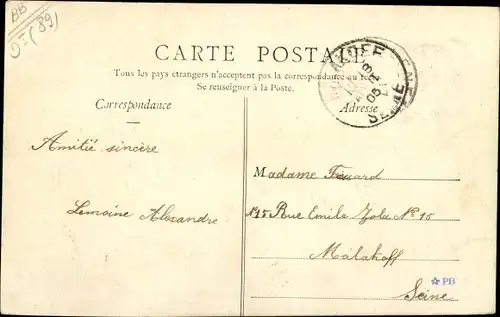 BB
(89)
CARTE POSTALE
Tous les pays étrangers n'acceptent pas la correspondance au
Se renseigner à la Poste.
Correspondance
Adresse
SEINE
Amitié sincère
Lemoine Alexandre
Madame
Rue Emile Zola No 15
Malakoff
PB
Seine